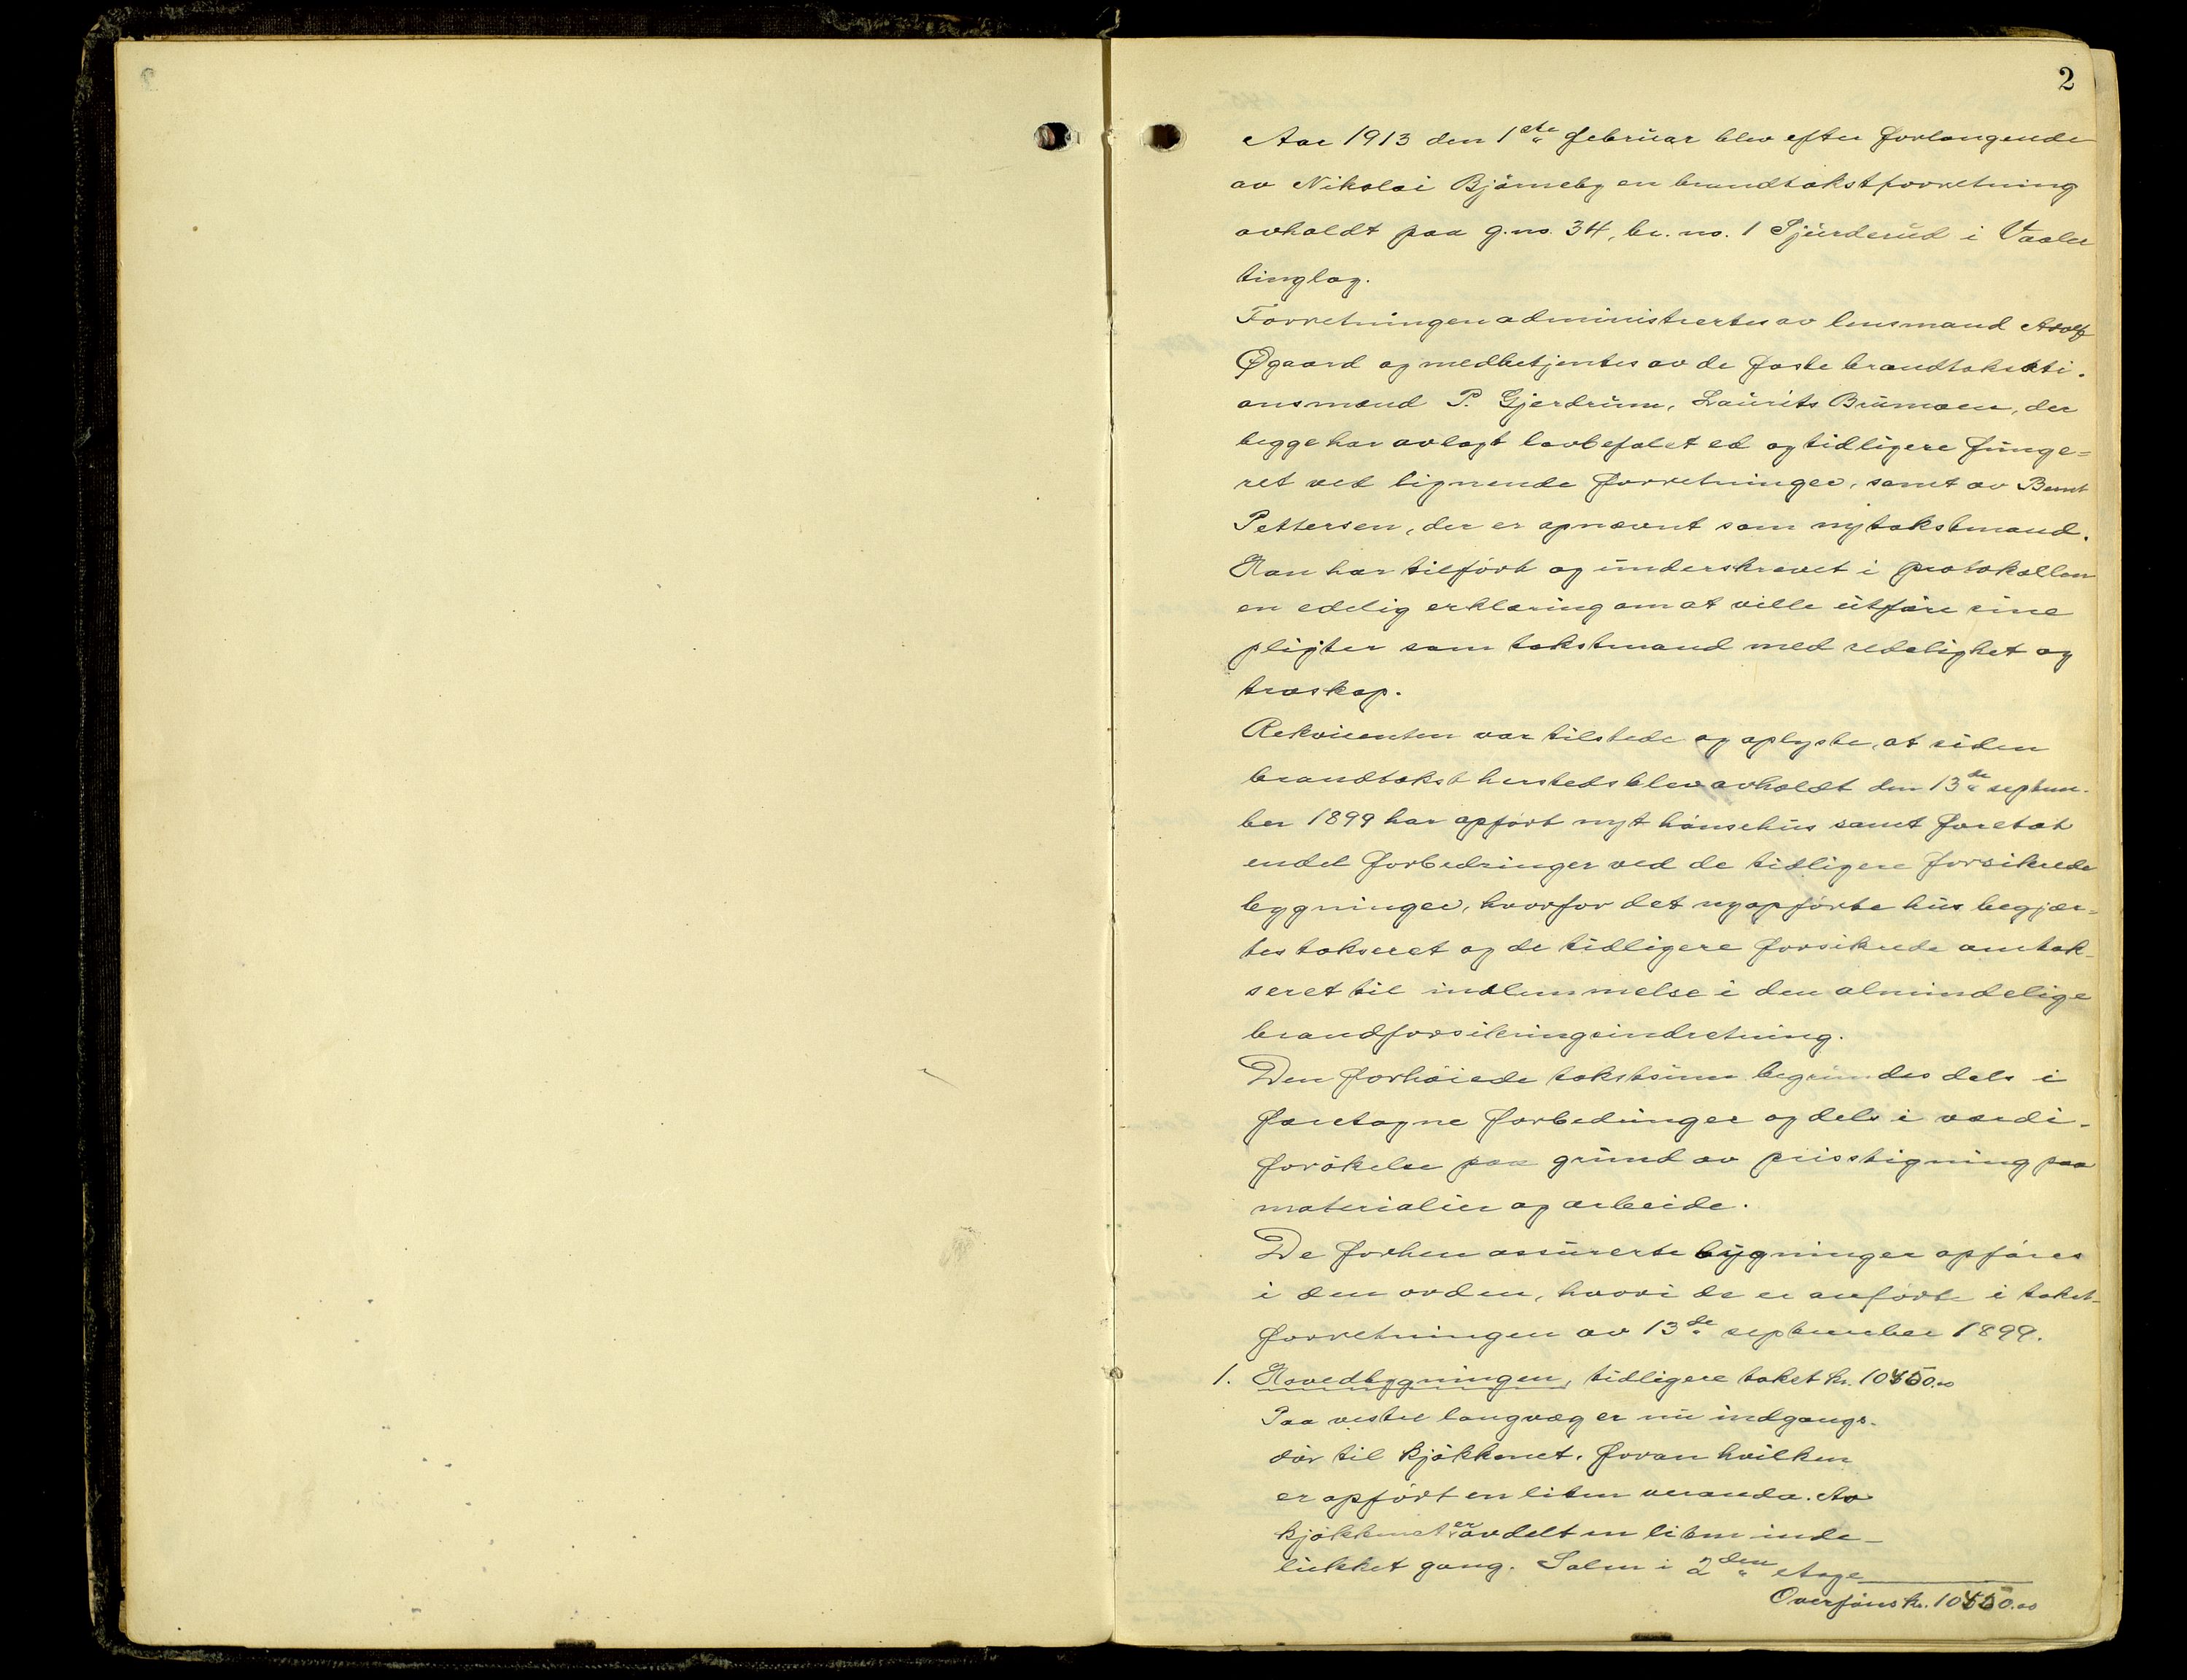 2
Aar 1913 den 1ste februar blev efter forlangende
av Nikolai Bjørneby en brandtakstforretning
avholdt paa g.no. 34, br. no. 1 Sjurderud i Vaaler
tinglag.
Forretningen administrertes av lensmand Adolf
Øgaard og medbetjentes av de faste brandtaksati-
onsmænd P. Gjerdrum, Laurits Brumoen, der
begge har avlagt lovbefalet ed og tidligere funge=
ret ved lignende forretninger, samt av Bernt
Pettersen, der er opnævnt som ny takstmand.
Han har tilført og underskrevet i protokollen
en edelig erklæring om at ville utføre sine
pligter som takstmand med redelighet og
troskap.
Rekvirenten var tilstede og oplyste, at siden
brandtakst hersteds blev avholdt den 13de septem-
ber 1899 har opført nyt hønsehus samt foretat
endel forbedringer ved de tidligere forsikrede
bygninger, hvorfor det nyopførte hus begjær=
tes takseret og de tidligere forsikrede omtak-
seret til indlemmelse i den almindelige
brandforsikringsindretning.
Den forhøiede takstsum begrundes dels i
foretagne forbedringer og dels i værdi-
forøkelse paa grund av prisstigning paa
materialier og arbeide.
De forhen assurerte bygninger opføres
i den orden, hvori de er anført i takst-
forretningen av 13de september 1899.
1. Hovedbygningen, tidligere takst kr. 10450.00
Paa vestre langvæg er nu indgangs-
dør til kjøkkenet, foran hvilken
er opført en liten veranda. Av
kjøkkenet er avdelt en liten inde-
lukket gang. Salen i 2den etage
Overføres kr. 10450.00